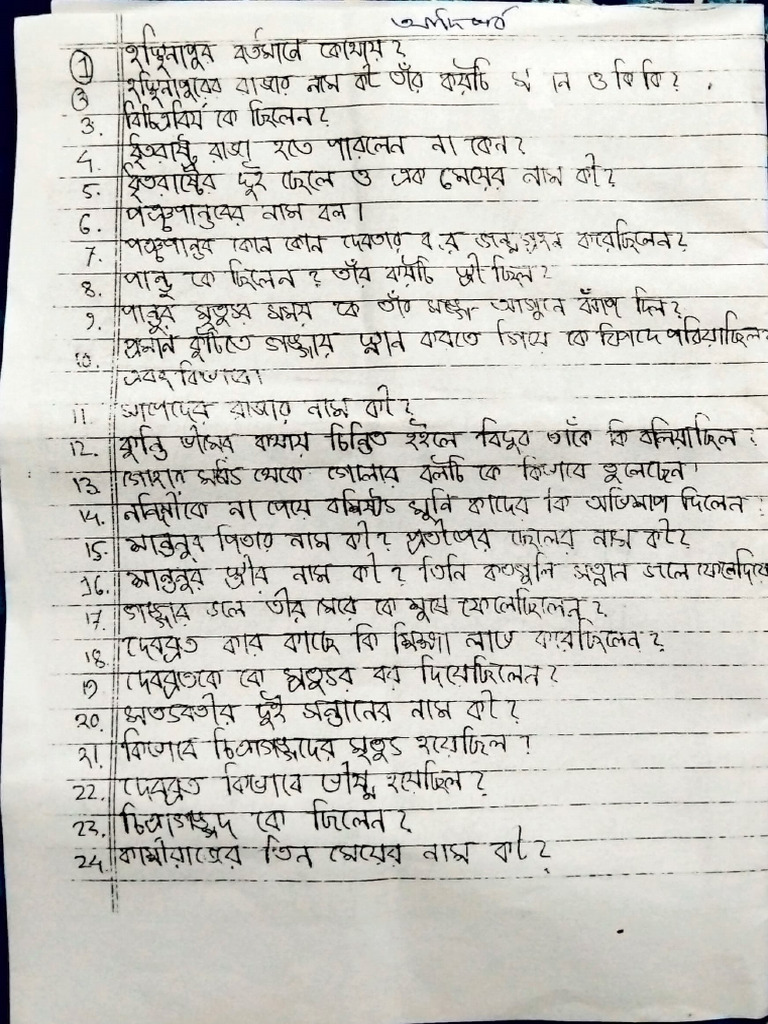 আদিপর্ব
1 হস্তিনাপুর বর্তমানে কোথায়?
2 হস্তিনাপুরের রাজার নাম কী তাঁর কয়টি ও কি কি?
3. বিচিত্রবির্য কে ছিলেন?
4. ধৃতরাষ্ট্র রাজা হতে পারলেন না কেন?
5. ধৃতরাষ্ট্রের দুই ছেলে ও এক মেয়ের নাম কী?
6. পঞ্চপান্ডবের নাম বল।
7. পঞ্চপান্ডব কোন কোন দেবতার জন্মগ্রহন করেছিলেন?
8. পান্ডু কে ছিলেন? তাঁর কয়টি স্ত্রী ছিল?
9. পান্ডুর মৃত্যুর সময় কে তাঁর সঙ্গে আগুনে ঝাঁপ দিল?
10. প্রমান কুটিতে গঙ্গায় স্নান করতে গিয়ে কে বিপদে পরিয়াছিল?
এবং কিভাবে।
11 সাপেদের রাজার নাম কী?
12. কুন্তি ভীমের কথায় চিন্তিত হইলে বিদুর তাঁকে কি বলিয়াছিল?
13. থেকে গোলার বলটি কে কিভাবে তুলেছেন
14. নন্দিনীকে না পেয়ে বশিষ্ঠ মুনি কাদের কি অভিশাপ দিলেন?
15. শান্তনুর পিতার নাম কী? প্রতীপের ছেলের নাম কী?
16. শান্তনুর স্ত্রীর নাম কী? তিনি কতগুলি সন্তান জলে ফেলেদিয়ে
17. গঙ্গার জলে তীর মেরে কে শুষে ফেলেছিলেন?
18. দেবব্রত কার কাছে কি শিক্ষা লাভ করেছিলেন?
19 দেবব্রতকে কে মৃত্যুর বর দিয়েছিলেন?
20. সত্যবতীর দুই সন্তানের নাম কী?
21. কিভাবে চিত্রাঙ্গদের মৃত্যু হয়েছিল?
22. দেবব্রত কিভাবে ভীষ্ম হয়েছিল?
23. চিত্রাঙ্গদ কে ছিলেন?
24 কাশীরাজের তিন মেয়ের নাম কী?